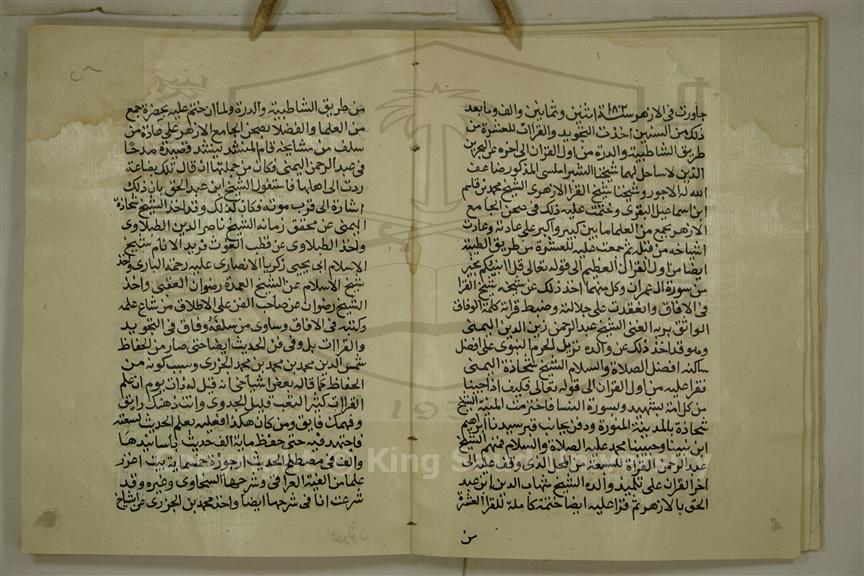 جاورت في الازهر سنة ١١٨٢ اثنين وثمانين والف وما بعد
ذلك من السنين اخذت التجويد والقراات للعشرة من
طريق الشاطبية والدرة من اول القران الى اخره عن البحرين
الذين لا ساحل لهما شيخنا الشبراملسي المذكور ضاعف
الله له الاجور وشيخنا شيخ القرا الازهري الشيخ محمد بن قاسم
ابن اسماعيل البقري وختمت عليه ذلك في صحن الجامع
الازهر بجمع من العلما ما بين كبير واكبر على عادته وعادت
اشياخه من قبله ثم جمعت عليه للعشرة من طريق الطيبة
ايضا من اول القران العظيم الى قوله تعالى قل اؤنبئكم بخير
من سورة ال عمران وكل منهما اخذ ذلك عن شيخه شيخ القرا
في الافاق وانعقدت على جلالته وضبط قراته كلمة الوفاق
الواثق بربه الغني الشيخ عبد الرحمن زين الدين اليمني
وهو قد اخذ ذلك عن والده نزيل الحرم النبوي على افضل
ساكنه افضل الصلاة والسلام الشيخ شحاذة اليمني
فقرا عليه من اول القران الى قوله تعالى فكيف اذا جينا
من كل امة بشهيد بسورة النسا فاخترمت المنية الشيخ
شحاذة بالمدينة المنورة ودفن بجانب قبر سيدنا ابراهيم
ابن نبينا وحبيبنا محمد عليه الصلاة والسلام فتهم الشيخ
عبد الرحمن القراة للسبعة من المحل الذي وقف عليه الى
اخر القران على تلميذ والده الشيخ شهاب الدين ابن عبد
الحق بالازهر ثم قرا عليه ايضا ختمة كاملة للقرا العشرة
من
من طريق الشاطبية والدرة ولما ان ختم عليه بحضرة جمع
من العلما والفضلا بصحن الجامع الازهر على عادة من
سلف من مشايخه قام المنشد ينشد قصيدة مدحا
في عبد الرحمن اليمني وكان من جملتها ان قال تلك بضاعة
ردت الى اهلها فاستغول الشيخ ابن عبد الحق بان ذلك
اشارة الى قرب موته فكان كذلك وقد اخذ الشيخ شحاذة
اليمني عن محقق زمانه الشيخ ناصر الدين الطبلاوي
واخذ الطبلاوي عن قطب الغوث وفريد الانام شيخ
الاسلام ابي يحيى زكريا الانصاري عليه رحمة الباري واخذ
شيخ الاسلام عن الشيخ العمدة رضوان العقبي واخذ
الشيخ رضوان عن صاحب الفن على الاطلاق من شاع علمه
وكتبه في الافاق وساوى من سلفه وفاق في التجويد
والقراات بل وفي فن الحديث ايضا حتى صار من الحفاظ
شمس الدين محمد بن محمد بن محمد الجزري وسبب كونه من
الحفاظ كما قاله بعض اشياخي انه قيل له ذات يوم ان علم
القراات كثير التعب قليل الجدوى وانت ذهنك رايق
وفهمك فايق ومن كان هكذا فعليه بعلم الحديث لسعته
فاجتهد فيه حتى حفظ ماية الف حديث باسانيدها
والف في مصطلح الحديث ارجوزة خمسماية بيت اعزر
علما من الفية العراقي وشرحها السخاوي وغيره وقد
شرعت انا في شرحها ايضا واخذ محمد بن الجزري عن اشياخ